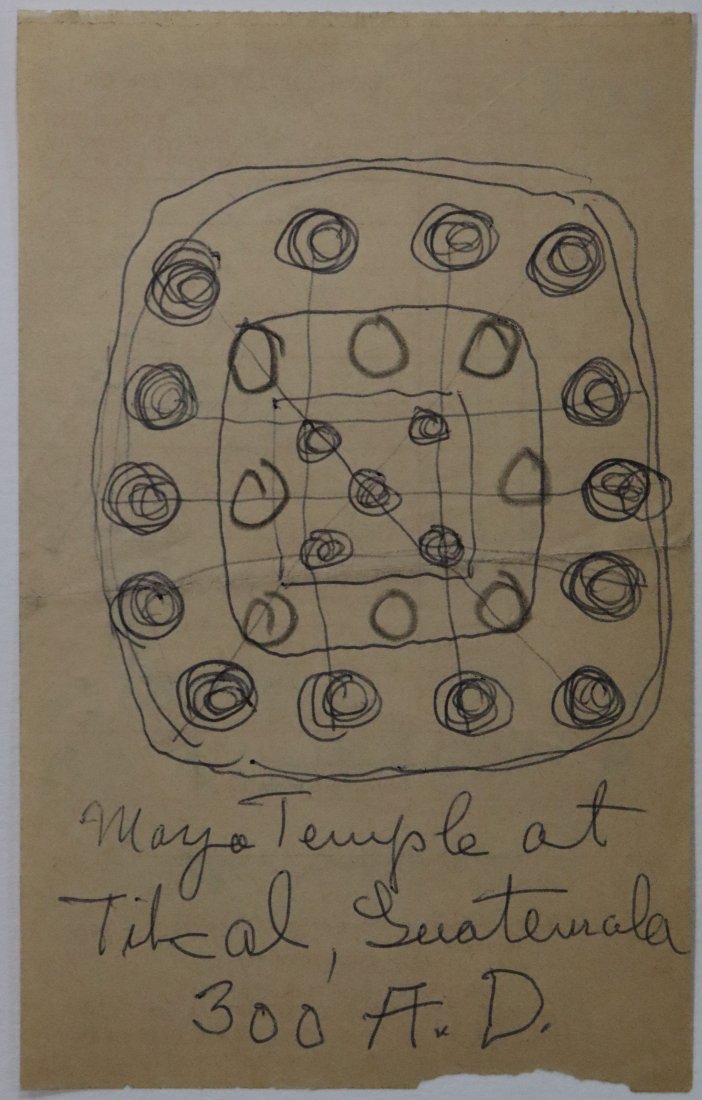 Maya Temple at
Tikal, Guatemala
300 A.D.